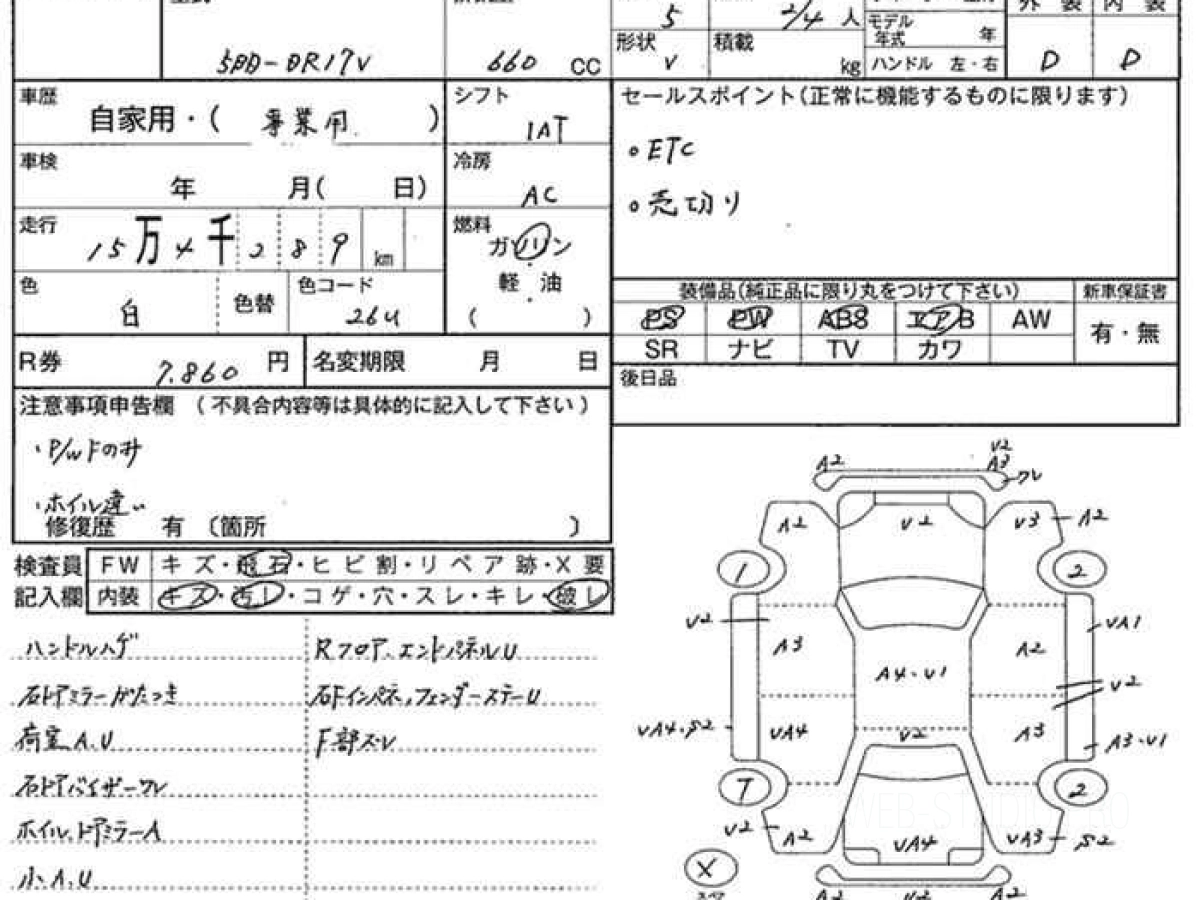 5BD-DR17V 660 CC
5 2/4 人 モデル年式 年 外装 内装
形状 V 積載 kg ハンドル 左・右 D D
車歴 自家用・( 事業用 ) シフト IAT
車検 年 月( 日) 冷房 AC
走行 15万4千289 km 燃料 ガソリン
軽 油
( )
色 白 色替 色コード 26U
R券 7.860 円 名変期限 月 日
注意事項申告欄 (不具合内容等は具体的に記入して下さい)
・P/W Fのみ
・ホイル違い
修復歴 有 〔箇所 〕
セールスポイント(正常に機能するものに限ります)
○ETC
○売切り
装備品(純正品に限り丸をつけて下さい) 新車保証書
PS PW ABS エアB AW 有・無
SR ナビ TV カワ
後日品
検査員 FW キズ・飛石・ヒビ割・リペア跡・X要
記入欄 内装 キズ・汚レ・コゲ・穴・スレ・キレ・破レ
ハンドルハゲ Rフロア、エンドパネルU
右ドアミラーがたつき 右Fインパネ、フェンダーステーU
荷室A.U F部ズレ
右ドアバイザーワレ
ホイル、ドアミラーA
小A.U
V2
A2 A3 ワレ
A2 V2 V3 A2
1 2
V2 VA1
A3 A2
A4・V1 V2
VA4・S2 VA4 V2 A3 A3・V1
7 2
V2 A2 VA4 VA3 S2
X
A2 V2 A2
WEB-STUDIO.RO